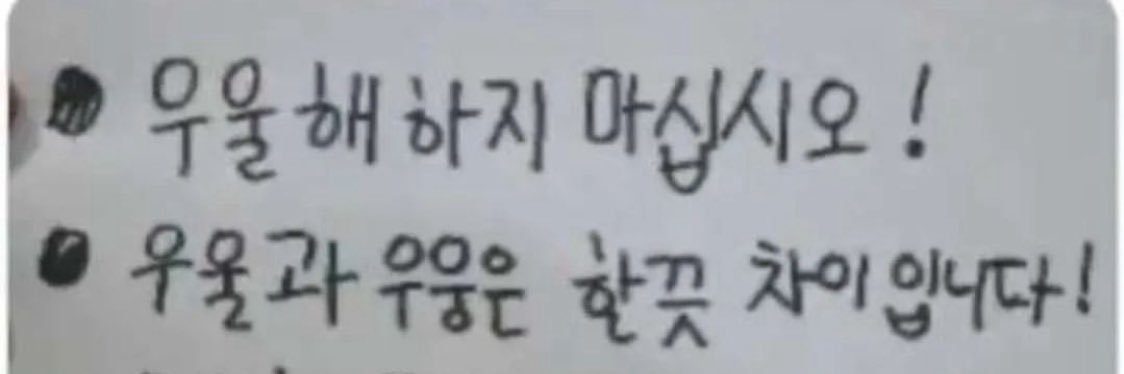 ● 우울해하지 마십시오!
● 우울과 우웅은 한끗 차이입니다!